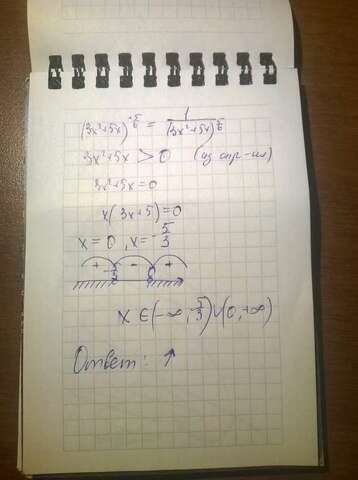 (3x²+5x)^(-5/6) = 1/(3x²+5x)^(5/6)
3x²+5x > 0 (из опр-ия)
3x²+5x=0
x(3x+5)=0
x=0, x=-5/3
+ - +
-5/3 0
x ∈ (-∞, 5/3) ∪ (0, +∞)
Ответ: ↑